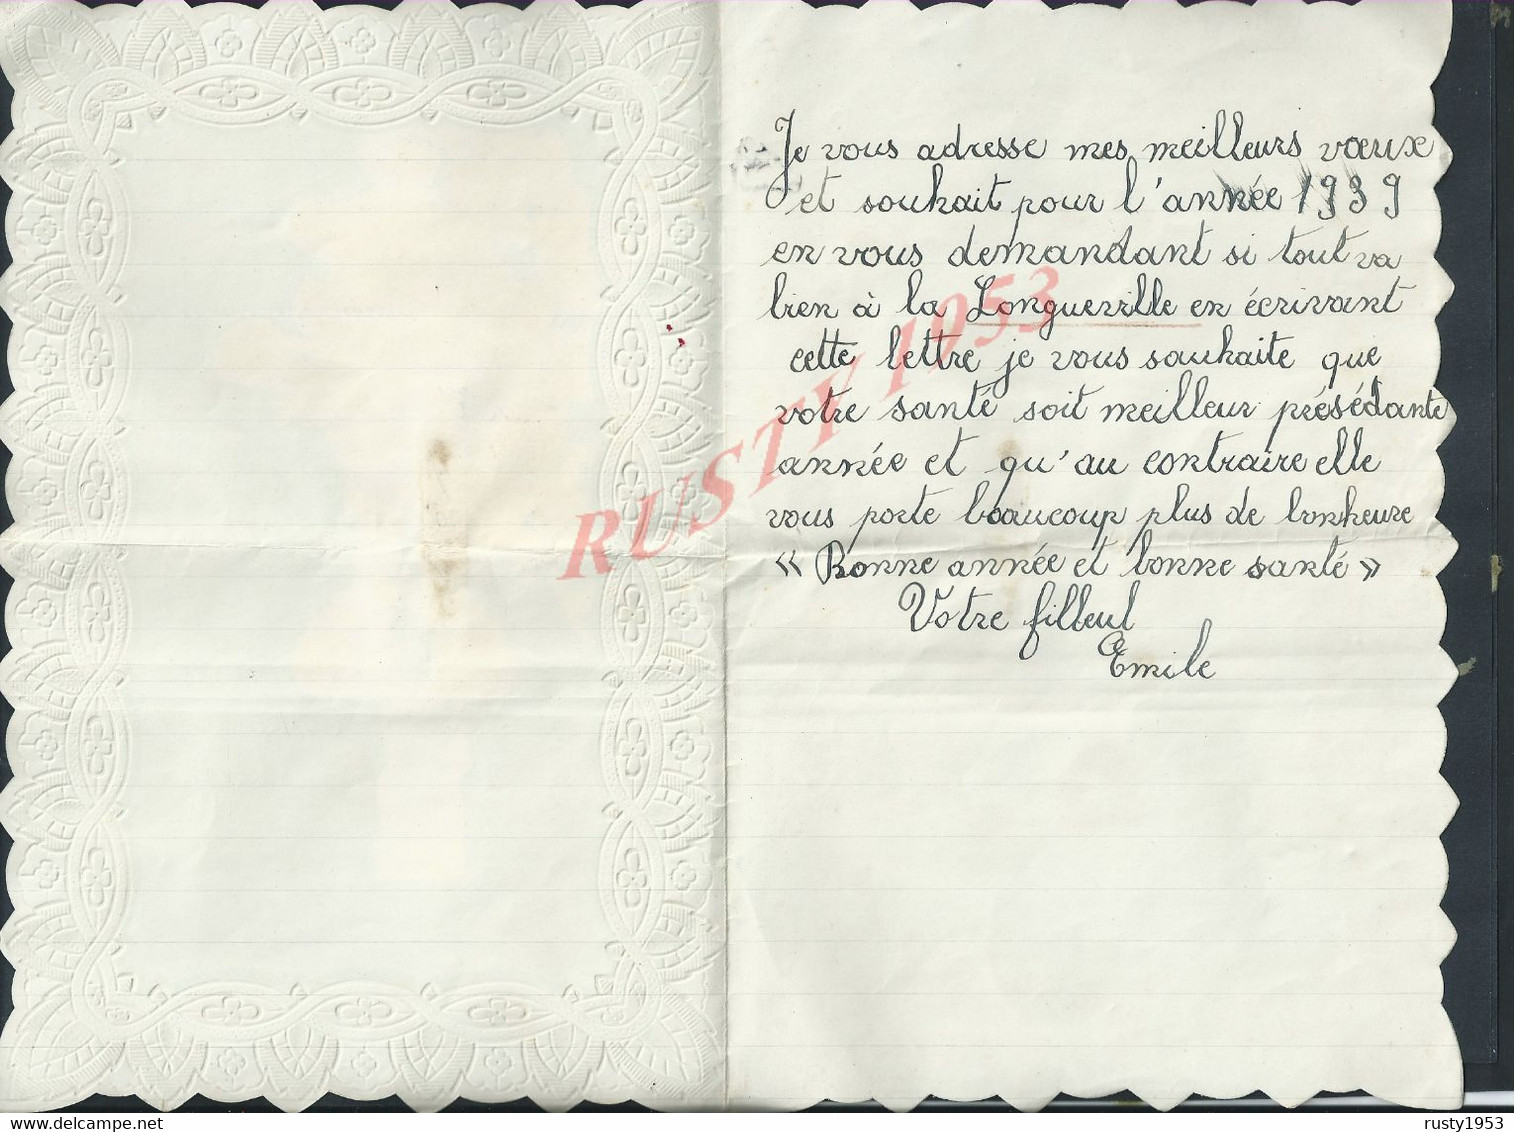 Je vous adresse mes meilleurs vœux
et souhait pour l'année 1939
en vous demandant si tout va
bien à la Longueville en écrivant
cette lettre je vous souhaite que
votre santé soit meilleur présédante
année et qu'au contraire elle
vous porte beaucoup plus de bonheure
« Bonne année et bonne santé »
Votre filleul
Emile
RUSTY 1953
delcampe.net
rusty1953